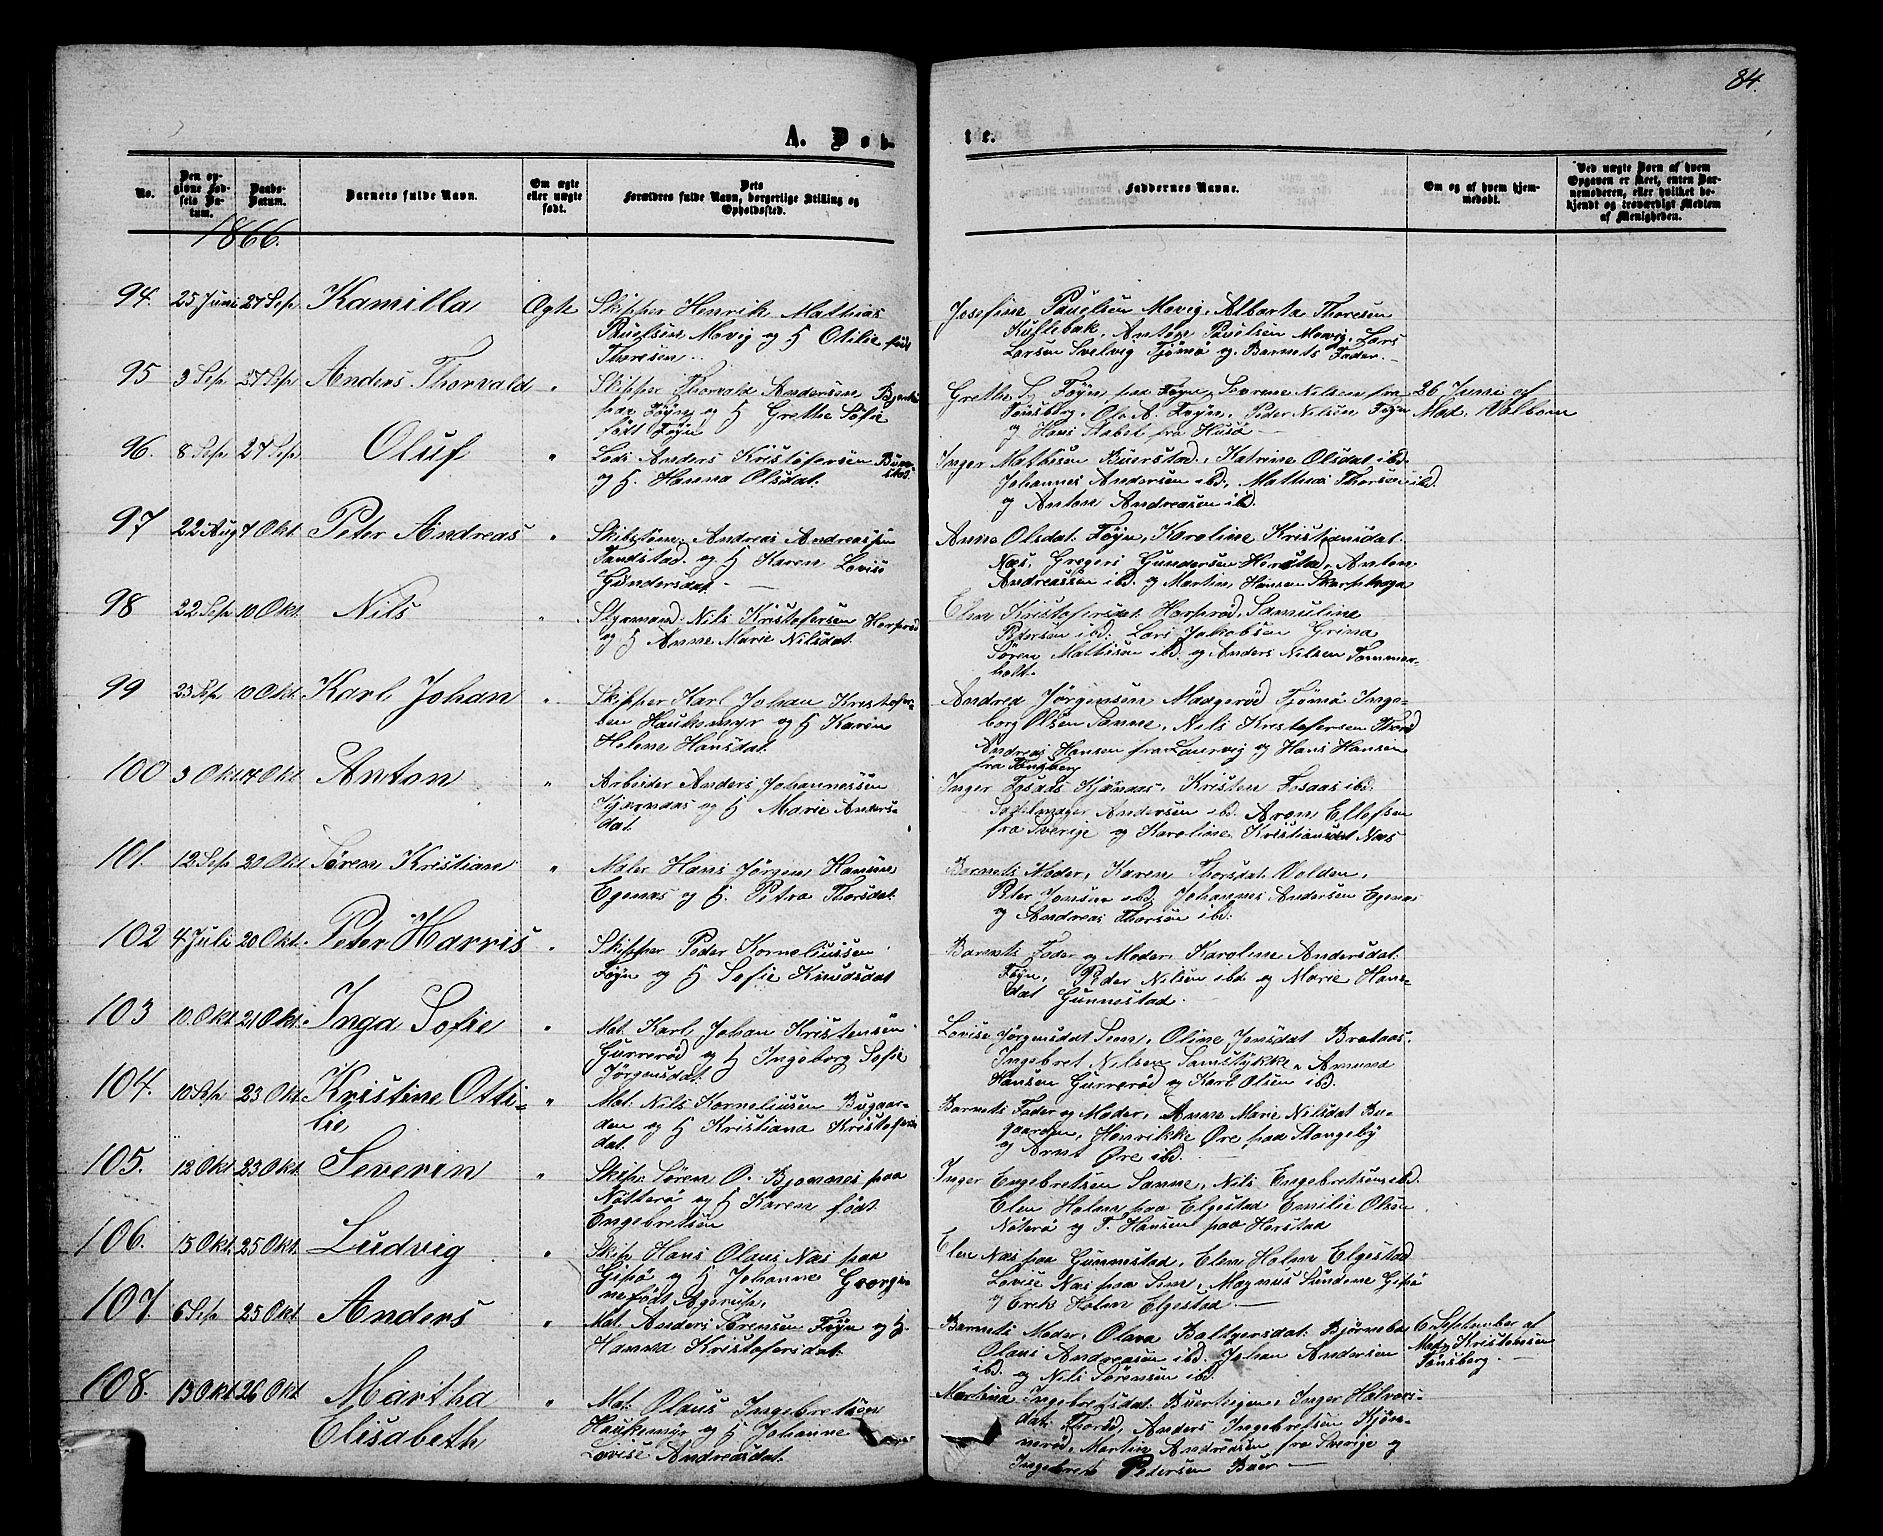 84.
A. Døb-
te.
No.
Den op-
givne Fød-
sels Da-
tum.
Daabs-
Datum.
Barnets fulde Navn.
Om ægte
eller uægte
født.
Dets
Forældres fulde Navn, borgerlige Stilling og
Opholdssted.
Faddernes Navne.
Om og af hvem hjem-
medøbt.
Ved uægte Børn af hvem
Opgaven er skeet, enten Bar-
nemoderen, eller hvilket be-
kjendt og troværdigt Medlem
af Menigheden.
1866.
94. 25 Juni 27 Sep Kamilla Ægte Skipper Henrik Mathias
Paulsen Movig og H Otilie født
Thoresen
Josefine Pauelsen Movig, Albarta Thoresen
Kullebak, Anton Pauelsen Movig, Lars
Larsen Svelvig Tjømø og Barnets Fader.
95 3 Sep 27 Sep Anders Thorvald " Skipper Thorvald Andersen
paa Føyn og H Grethe Sofie
født Føyn
Grethe S. Føyn paa Føyn, Severine Nilsen fra
Tønsberg, Ol. A. Føyn, Peder Nilsen Føyn
og Hans Stabel fra Husø
26 Juni af
Mad. Valborn
96. 8 Sep 27 Sep Oluf " Lods Anders Kristofersen Buer-
stad
og H. Hanna Olsdat.
Inger Mathisen Buerstad, Katrine Olsdat ibd.
Johannes Andersen ibd, Mathias Thorsen ibd
og Anton Andreasen ibd.
97 22 Aug 7 Okt. Peter Andreas " Skibstøm. Andreas Andreassen
Tandstad og H Karen Lovise
Gundersdat.
Anne Olsdat Føyn, Karoline Kristiansdat.
Næs, Gregers Gundersen Herstad, Anton
Andreassen ibd. og Martin Hansen Skarphaga
98 22 Sep 10 Okt. Nils " Styrmand Nils Kristofersen Harperød
og H Anne Marie Nilsdat.
Elen Kristofersdat. Harperød, Samuline
Pedersen ibd. Lars Jakobsen Grima
Søren Mathisen ibd. og Anders Nelsen Tommer-
holt.
99 23 Sep. 10 Okt. Karl Johan " Skipper Karl Johan Kristofer-
sen Haukemyr og H Karen
Helene Hansdat.
Andrea Jørgensen Maagerød Tjømø Inge-
borg Olsen Sanne, Nils Kristofersen Thorød
Andreas Hansen fra Laurvig og Hans Hansen
fra Tønsberg
100 3 Okt. 14 Okt. Anton " Arbeider Anders Johannessen
Kjærnaas og H Marie Anders-
dat.
Inger Fosaas Kjærnaas, Kristen Fosaas ibd.
Sadelmager Andersen ibd. Aron Ellefsen
fra Sverige og Karoline Kristiansdat Næs
101. 12 Sep 20 Okt Søren Kristian " Maler Hans Jørgen Hansen
Egenæs og H. Petra Thorsdat.
Barnets Moder, Karen Thorsdat. Volden,
Peter Jonsen ibd. Johannes Andersen Egenæs
og Andreas Thorsøn ibd.
102 4 Juli 20 Okt. Peter Harris " Skipper Peder Korneliussen
Føyn og H Sofie Knudsdat
Barnets Fader og Moder, Karoline Andersdat.
Føyn, Peder Nilsen ibd. og Marie Hans-
dat Gunnestad.
103 10 Okt. 21 Okt. Inga Sofie " Mat. Karl Johan Kristensen
Gurrerød og H Ingeborg Sofie
Jørgensdat.
Lovise Jørgensdat Sem, Oline Jensdat Brataas.
Ingebret Nilsen Samstykke, Amma
Hansen Gurrerød og Karl Olsen ibd.
104. 10 Sep 23 Okt. Kristine Otti-
lie " Mat. Nils Korneliusen Bugaar-
den og H Kristiana Kristofers
dat.
Barnets Fader og Moder, Anne Marie Nilsdat Bu-
gaarden, Henrikke Øre paa Stangeby
og Arnt Øre ibd.
105. 12 Okt 23 Okt. Severin " Skip. Søren O. Bjønnes paa
Nøtterø og H Karen født
Engebretsen
Inger Engebretsen Sanne, Nils Engebretsen ibd.
Elen Holm paa Elgestad Emilie Olsen
Nøterø og T. Hansen paa Herstad
106. 15 Okt. 25 Okt. Ludvig " Skip. Hans Olaus Næs paa
Gipø og H Johanne Georgi-
ne født Agerup.
Elen Næs paa Gunnestad, Elen Holm Elgestad
Lovise Næs paa Sem, Magnus Sundene Gipø
og Erik Holm Elgestad
107. 6 Sep 25 Okt Anders " Mat. Anders Sørensen Føyn og H.
Hanna Kristofersdat.
Barnets Moder, Olava Baltzersdat. Bjørnebo
Olaus Andreasen ibd. Johan Andersen
ibd. og Nils Sørensen ibd.
6 September af
Mad. Kristensen
Tønsberg.
108. 13 Okt. 26 Okt Martha
Elisabeth " Mat. Olaus Ingebretsen
Haukemyr og H Johanne
Lovise Andreasdat.
Martina Ingebretsdat. Buerhagen, Inger Halvors-
dat. Thorød, Anders Ingebretsen Kjøn-
nerød, Martin Andreasen fra Sverige og
Ingebret Pedersen Buer